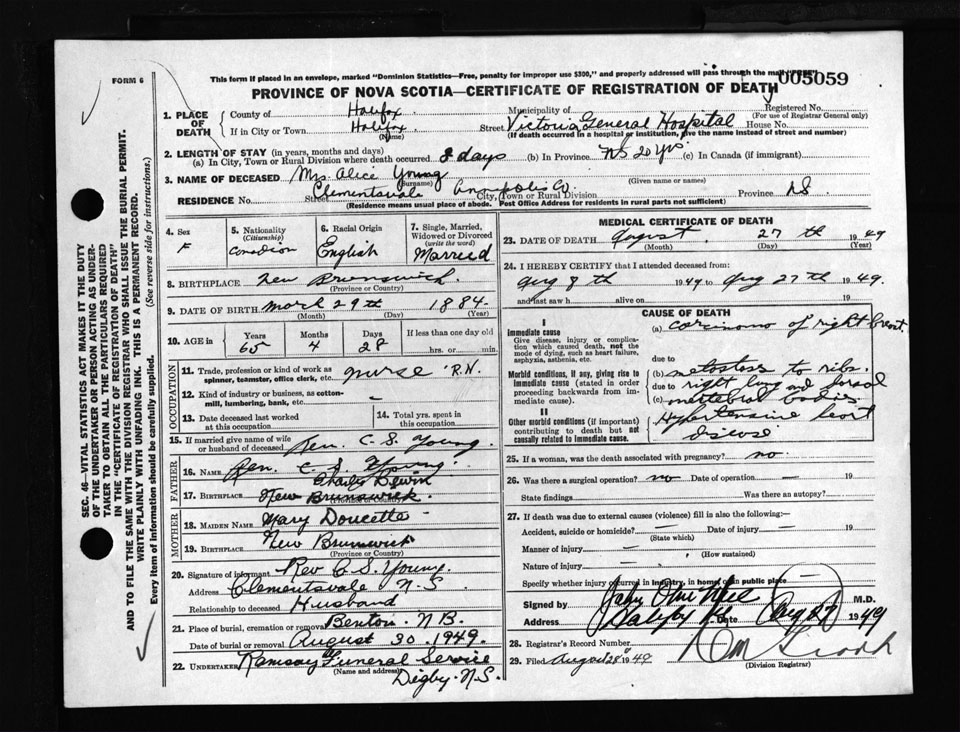 FORM 6
This form if placed in an envelope, marked "Dominion Statistics—Free, penalty for improper use $300," and properly addressed will pass through the mail "FREE"
005059
PROVINCE OF NOVA SCOTIA—CERTIFICATE OF REGISTRATION OF DEATH
SEC. 46—VITAL STATISTICS ACT MAKES IT THE DUTY
OF THE UNDERTAKER OR PERSON ACTING AS UNDER-
TAKER TO OBTAIN ALL THE PARTICULARS REQUIRED
IN THE "CERTIFICATE OF REGISTRATION OF DEATH"
AND TO FILE THE SAME WITH THE DIVISION REGISTRAR WHO SHALL ISSUE THE BURIAL PERMIT.
WRITE PLAINLY WITH UNFADING INK. THIS IS A PERMANENT RECORD.
Every item of information should be carefully supplied. (See reverse side for instructions.)
1. PLACE OF DEATH
County of Halifax
Municipality of
Registered No.
(For use of Registrar General only)
If in City or Town Halifax
(Name)
Street Victoria General Hospital House No.
(If death occurred in a hospital or institution, give the name instead of street and number)
2. LENGTH OF STAY (in years, months and days)
(a) In City, Town or Rural Division where death occurred 8 days (b) In Province NS 20 yrs (c) In Canada (if immigrant)
3. NAME OF DECEASED Mrs Alice Young
(Surname) (Given name or names)
RESIDENCE No. Street Clementsvale Annapolis Co. City, Town or Rural Division Province NS
(Residence means usual place of abode. Post Office Address for residents in rural parts not sufficient)
4. Sex F
5. Nationality (Citizenship) Canadian
6. Racial Origin English
7. Single, Married, Widowed or Divorced (write the word) Married
8. BIRTHPLACE New Brunswick.
(Province or Country)
9. DATE OF BIRTH March 29th 1884.
(Month) (Day) (Year)
10. AGE in Years 65 Months 4 Days 28 If less than one day old hrs. or min.
OCCUPATION
11. Trade, profession or kind of work as spinner, teamster, office clerk, etc. nurse R.N.
12. Kind of industry or business, as cotton-mill, lumbering, bank, etc. —
13. Date deceased last worked at this occupation
14. Total yrs. spent in this occupation
15. If married give name of wife or husband of deceased Rev. C. S. Young.
FATHER
16. Name Rev. C. S. Young
Charles
17. Birthplace New Brunswick.
(Province or Country)
MOTHER
18. Maiden Name Mary Doucette
19. Birthplace New Brunswick
(Province or Country)
20. Signature of informant Rev C. S. Young.
Address Clementsvale N.S
Relationship to deceased Husband
21. Place of burial, cremation or removal Benton N B.
Date of burial or removal August 30. 1949.
22. UNDERTAKER Ramsay Funeral Service
(Name and address)
Digby. N.S.
MEDICAL CERTIFICATE OF DEATH
23. DATE OF DEATH August 27th 1949
(Month) (Day) (Year)
24. I HEREBY CERTIFY that I attended deceased from:
Aug 8th 1949 to Aug 27th 1949.
and last saw h alive on 19
CAUSE OF DEATH
I
Immediate cause
Give disease, injury or complication which caused death, not the mode of dying, such as heart failure, asphyxia, asthenia, etc.
(a) carcinoma of right breast
due to
Morbid conditions, if any, giving rise to immediate cause (stated in order proceeding backwards from immediate cause).
(b) metastases to ribs.
due to right lung and
(c) vertebral bodies
II
Other morbid conditions (if important) contributing to death but not causally related to immediate cause.
Hypertensive heart
disease
25. If a woman, was the death associated with pregnancy? no.
26. Was there a surgical operation? no Date of operation — 19
State findings Was there an autopsy?
27. If death was due to external causes (violence) fill in also the following:—
Accident, suicide or homicide? — Date of injury — 19
(State which)
Manner of injury —
(How sustained)
Nature of injury —
Specify whether injury occurred in industry, in home or in public place —
Signed by M.D.
Address Halifax NS Date Aug 27 1949
28. Registrar's Record Number
29. Filed August 28th 1949
(Division Registrar)